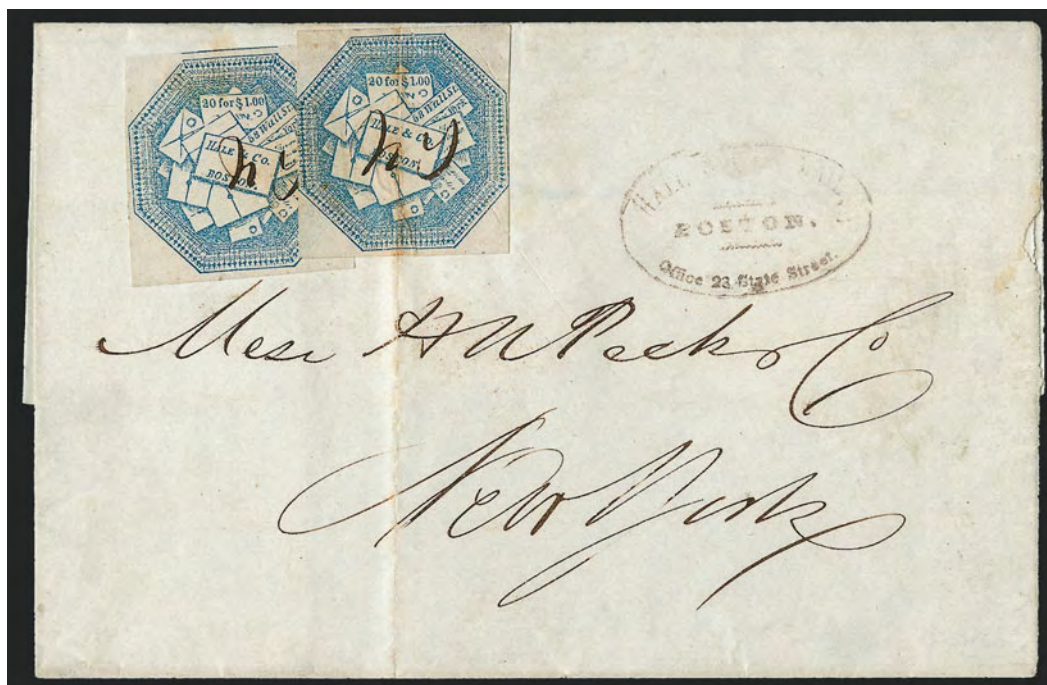 20 for $1.00
68 Wall St.
HALE & Co.
BOSTON.
20 for $1.00
68 Wall St.
York
HALE & Co.
BOSTON.
HALE
BOSTON.
Office 23 State Street.
Mess H Peck & Co
New York